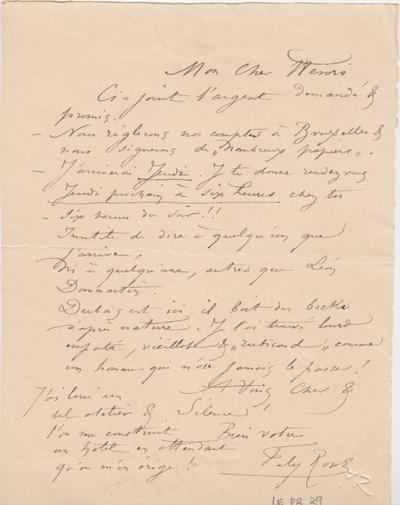 Mon Cher Henri
Ci-joint l'argent demandé &
promis.
– Nous réglerons nos comptes à Bruxelles &
nous signerons de „nombreux papiers".
– J'arriverai Jeudi. Je te donne rendez vous
Jeudi prochain à six heures chez toi
– six heures du soir!!
Inutile de dire à quelqu'un que
j'arrive,
ni à quelqu'une, autres que Léon
Dommartin.
Dubois est ici il boit des bocks
d'après nature. Je l'ai trouvé lourd
empaté, vieillot & „rubicond" comme
un homme qui n'ose jamais le passer!
A Vous Cher &
J'ai loué un
bel atelier & Silence!
l'on me construit Bien votre
un hotel en attendant
qu'on m'en érige! Fély Rops
LE PR 29